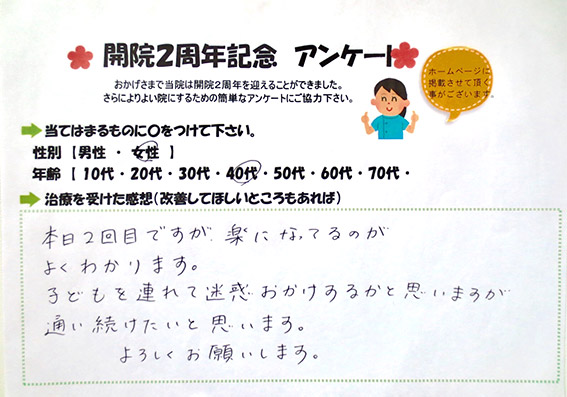 開院2周年記念 アンケート
おかげさまで当院は開院2周年を迎えることができました。
さらによりよい院にするための簡単なアンケートにご協力下さい。
ホームページに
掲載させて頂く
事がございます。
当てはまるものに○をつけて下さい。
性別 【 男性 ・ 女性 】
年齢 【 10代・20代・30代・40代・50代・60代・70代・
治療を受けた感想(改善してほしいところもあれば)
本日2回目ですが、楽になってるのが
よくわかります。
子どもを連れて迷惑おかけするかと思いますが
通い続けたいと思います。
よろしくお願いします。